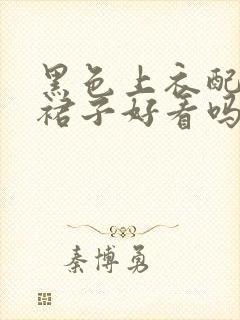 黑色上衣配
裙子好看吗
秦博勇